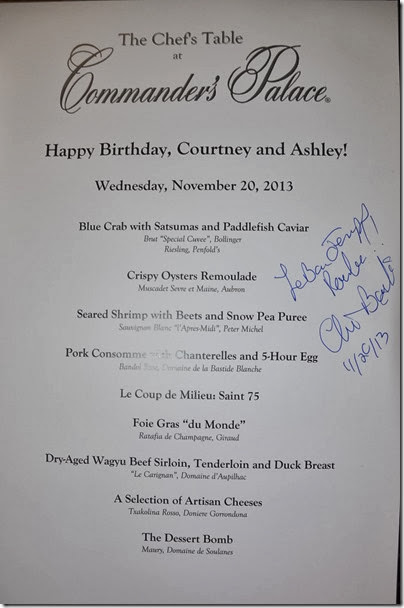 The Chef's Table
at
Commander's Palace®
Happy Birthday, Courtney and Ashley!
Wednesday, November 20, 2013
Blue Crab with Satsumas and Paddlefish Caviar
Brut "Special Cuvee", Bollinger
Riesling, Penfold's
Crispy Oysters Remoulade
Muscadet Sevre et Maine, Aubron
Seared Shrimp with Beets and Snow Pea Puree
Sauvignon Blanc "l'Apres-Midi", Peter Michel
Pork Consomme with Chanterelles and 5-Hour Egg
Bandol Rose, Domaine de la Bastide Blanche
Le Coup de Milieu: Saint 75
Foie Gras "du Monde"
Ratafia de Champagne, Giraud
Dry-Aged Wagyu Beef Sirloin, Tenderloin and Duck Breast
"Le Carignan", Domaine d'Aupilhac
A Selection of Artisan Cheeses
Txakolina Rosso, Doniene Gorrondona
The Dessert Bomb
Maury, Domaine de Soulanes
Le Bon Temps
Roulee!!